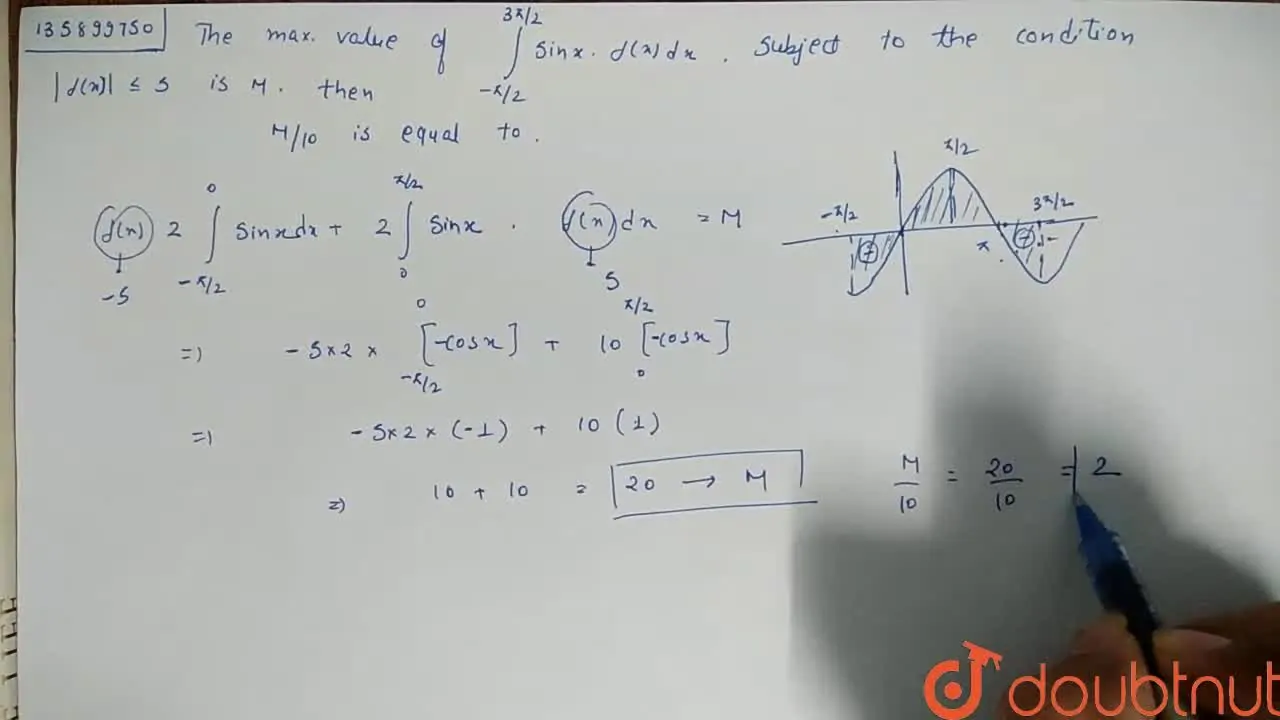 135899750 The max. value of ∫_{-π/2}^{3π/2} sinx. f(x) dx. Subject to the condition
|f(x)| ≤ 5 is M. then
M/10 is equal to.
f(x) 2 ∫_{-π/2}^{0} sinxdx + 2 ∫_{0}^{π/2} sinx . f(x) dx = M
-5 5
-π/2 π/2 π 3π/2
⇒ -5×2× [-cosx]_{-π/2}^{0} + 10 [-cosx]_{0}^{π/2}
⇒ -5×2×(-1) + 10 (1)
⇒ 10 + 10 = 20 → M
M/10 = 20/10 = 2
doubtnut